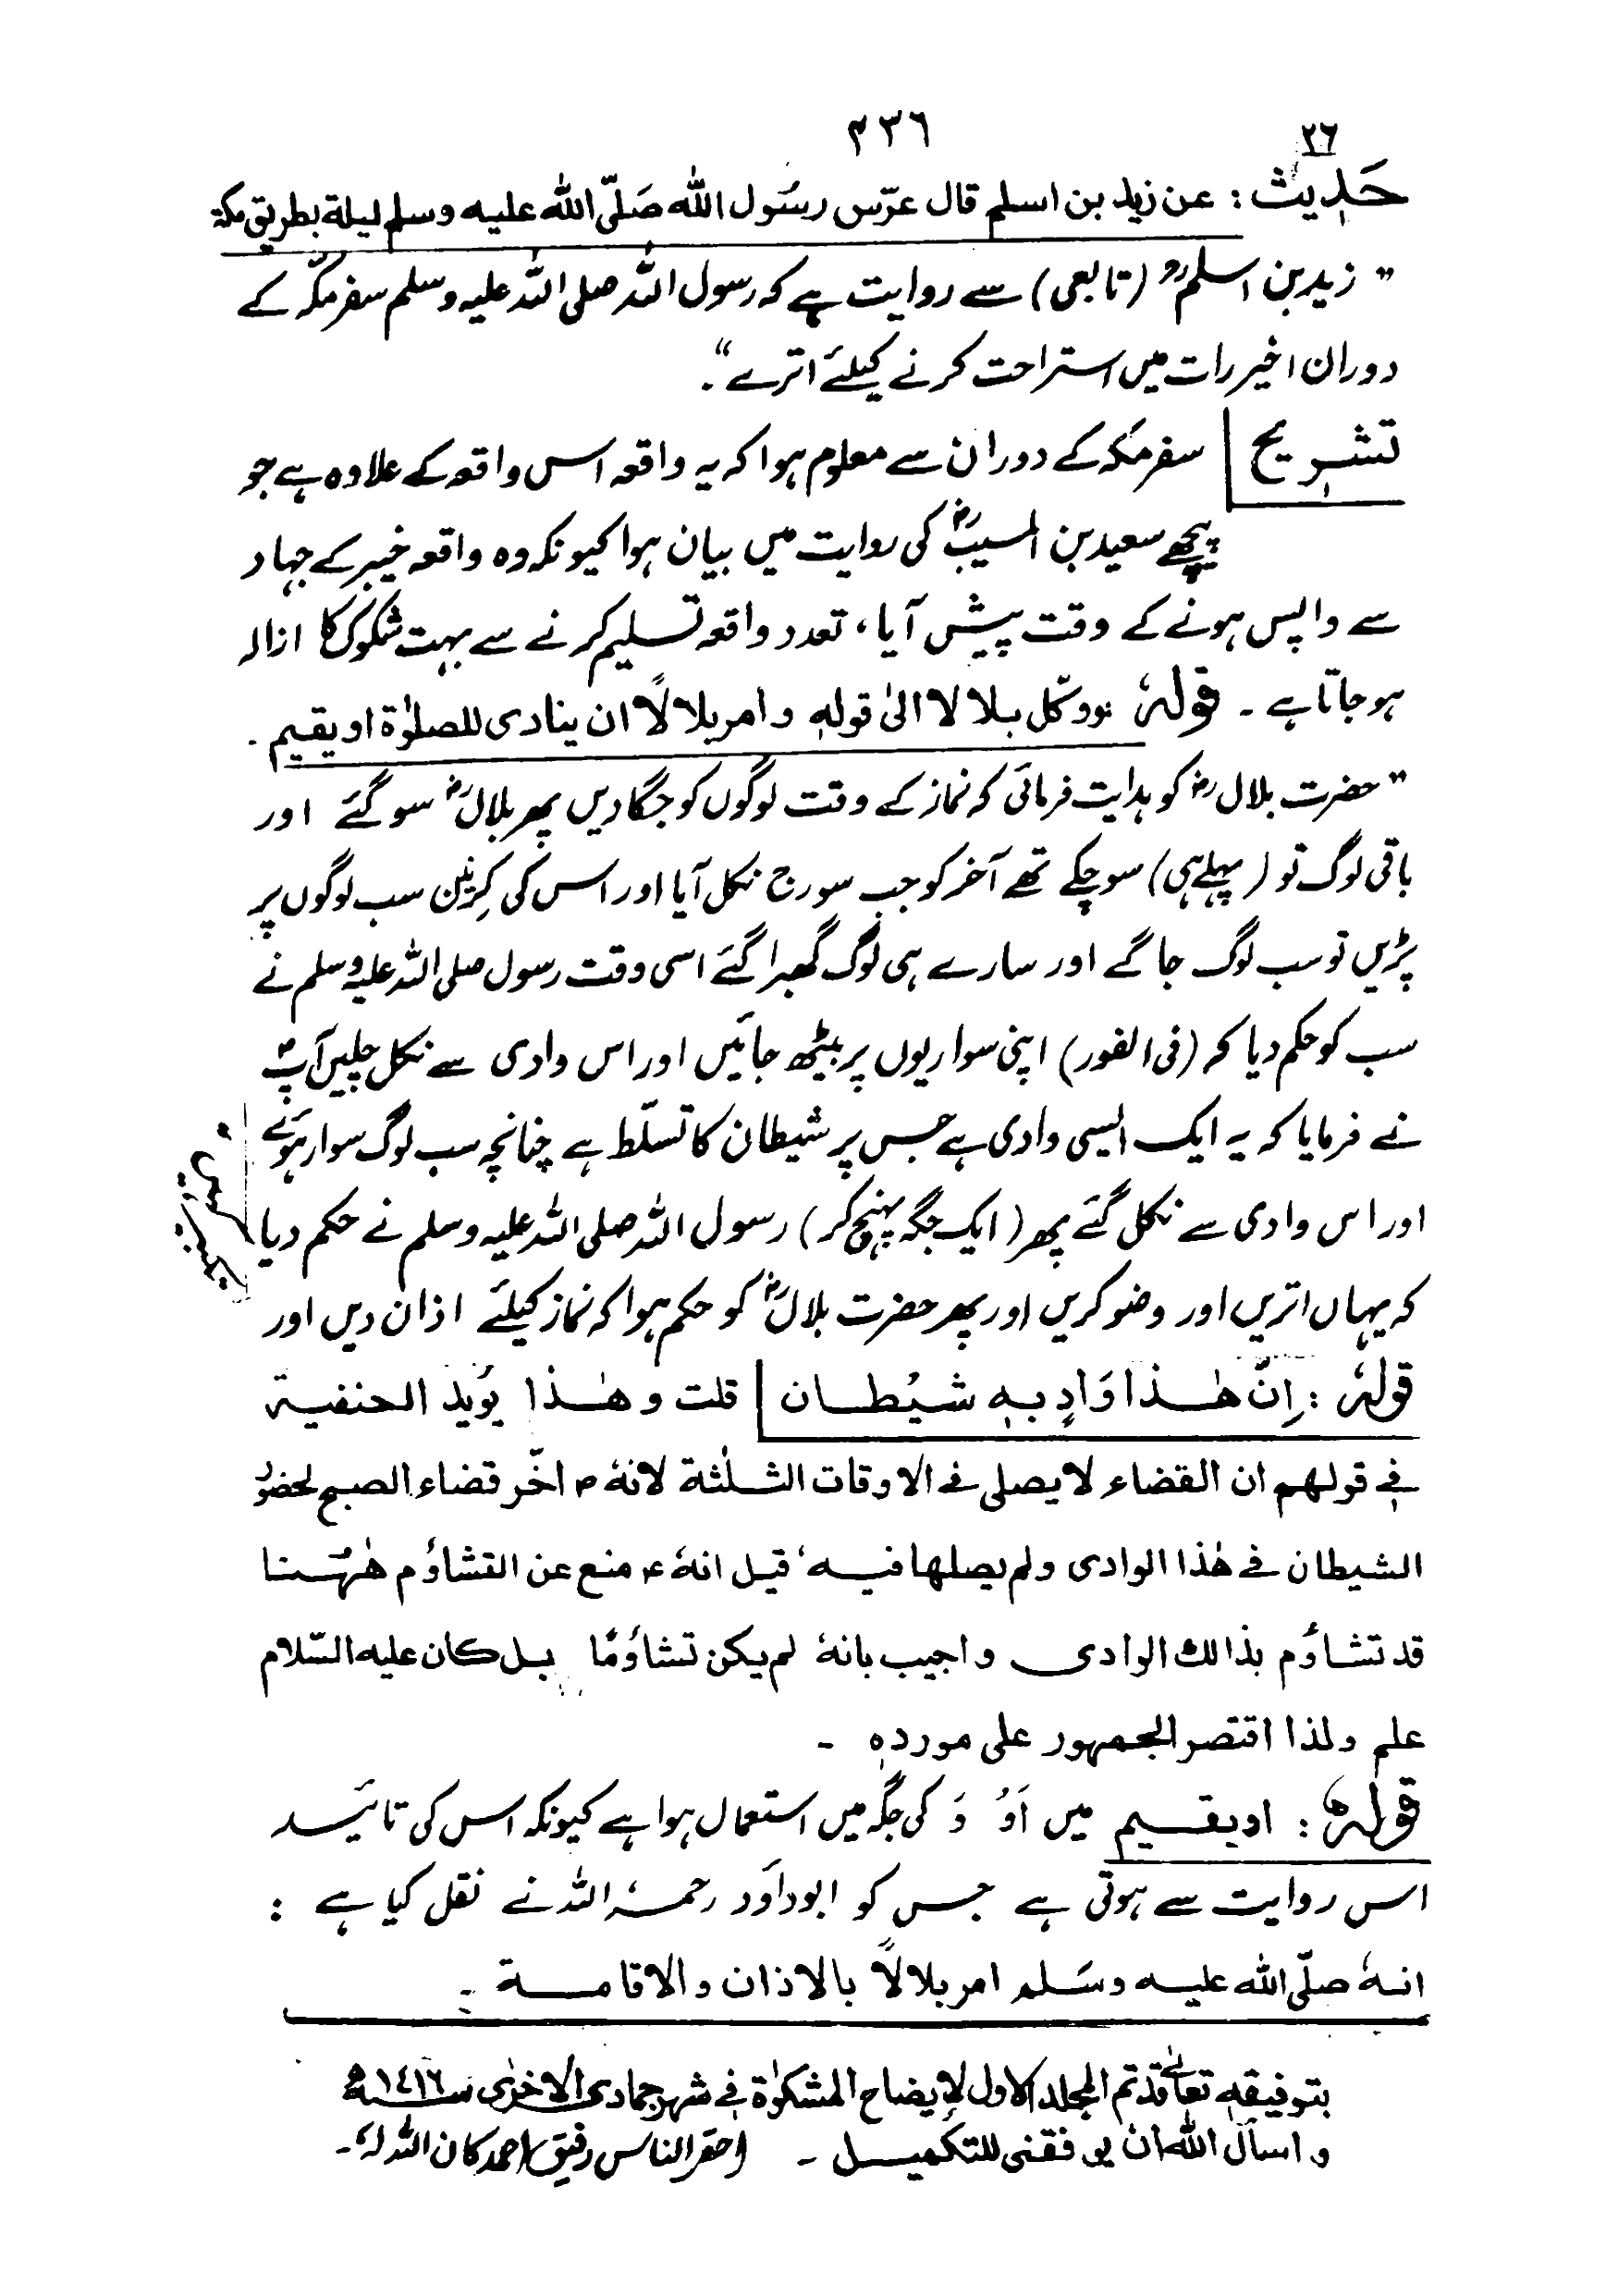 ۴۳۶
۲۶
حَدِیث : عن زید بن اسلم قال عرّس رسُول الله صَلّی الله علیه وسلم لیلة بطریق مکة
” زید بن اسلمؒ (تابعی) سے روایت ہے کہ رسول اللہ صلی اللہ علیہ وسلم سفر مکّہ کے
دوران اخیر رات میں استراحت کرنے کیلئے اترے “۔
تشریح | سفر مکہ کے دوران سے معلوم ہوا کہ یہ واقعہ اس واقعہ کے علاوہ ہے جو
پیچھے سعید بن المسیبؓ کی روایت میں بیان ہوا کیونکہ وہ واقعہ خیبر کے جہاد
سے واپس ہونے کے وقت پیش آیا، تعدد واقعہ تسلیم کرنے سے بہت شکوک کا ازالہ
ہو جاتا ہے ۔ قولهٗ ووکّل بلالا الیٰ قوله وامر بلالًا ان ینادی للصلوٰة او یقیم ۔
” حضرت بلالؓ کو ہدایت فرمائی کہ نماز کے وقت لوگوں کو جگا دیں پھر بلالؓ سو گئے اور
باقی لوگ تو (پہلے ہی) سو چکے تھے آخر کو جب سورج نکل آیا اور اس کی کِرنیں سب لوگوں پر
پڑیں تو سب لوگ جاگے اور سارے ہی لوگ گھبرا گئے اسی وقت رسول صلی اللہ علیہ وسلم نے
سب کو حکم دیا کہ (فی الفور) اپنی سواریوں پر بیٹھ جائیں اور اس وادی سے نکل چلیں آپؐ
نے فرمایا کہ یہ ایک ایسی وادی ہے جس پر شیطان کا تسلّط ہے چنانچہ سب لوگ سوار ہوئے
اور اس وادی سے نکل گئے پھر (ایک جگہ پہنچ کر) رسول اللہ صلی اللہ علیہ وسلم نے حکم دیا
کہ یہاں اتریں اور وضو کریں اور پھر حضرت بلالؓ کو حکم ہوا کہ نماز کیلئے اذان دیں اور
تکبیر کہیں ”
قولهٗ : اِنّ هٰذا وَادٍ بهٖ شیْطان | قلت وهٰذا یؤید الحنفیة
فی قولهم ان القضاء لا یصلی فی الاوقات الثلٰثة لانهٗ ؑ اخّر قضاء الصبح لحضور
الشیطان فی هٰذا الوادی ولم یصلها فیه ، قیل انهٗ ؑ منع عن التشاؤم هٰهُنا
قد تشاؤم بذالك الوادی واجیب بانهٗ لم یکن تشاؤمًا بل کان علیه السّلام
علم ولذا اقتصر الجمهور علی موردہٖ ۔
قولهٗ : او یقیم میں اَوْ وَ کی جگہ میں استعمال ہوا ہے کیونکہ اس کی تائید
اس روایت سے ہوتی ہے جس کو ابوداؤد رحمہ اللہ نے نقل کیا ہے :
انهٗ صلّی الله علیه وسَلم امر بلالاً بالاذان والاقامة ۔
بتوفیقهٖ تعالٰی قد تم المجلد الاول لإیضاح المشکوٰة فی شهر جمادی الاخرٰی سنہ ١٤١٦ھ
واسأل الله ان یوفقنی للتکمیل ۔ احقر الناس رفیق احمد کان اللہ لہٗ ۔